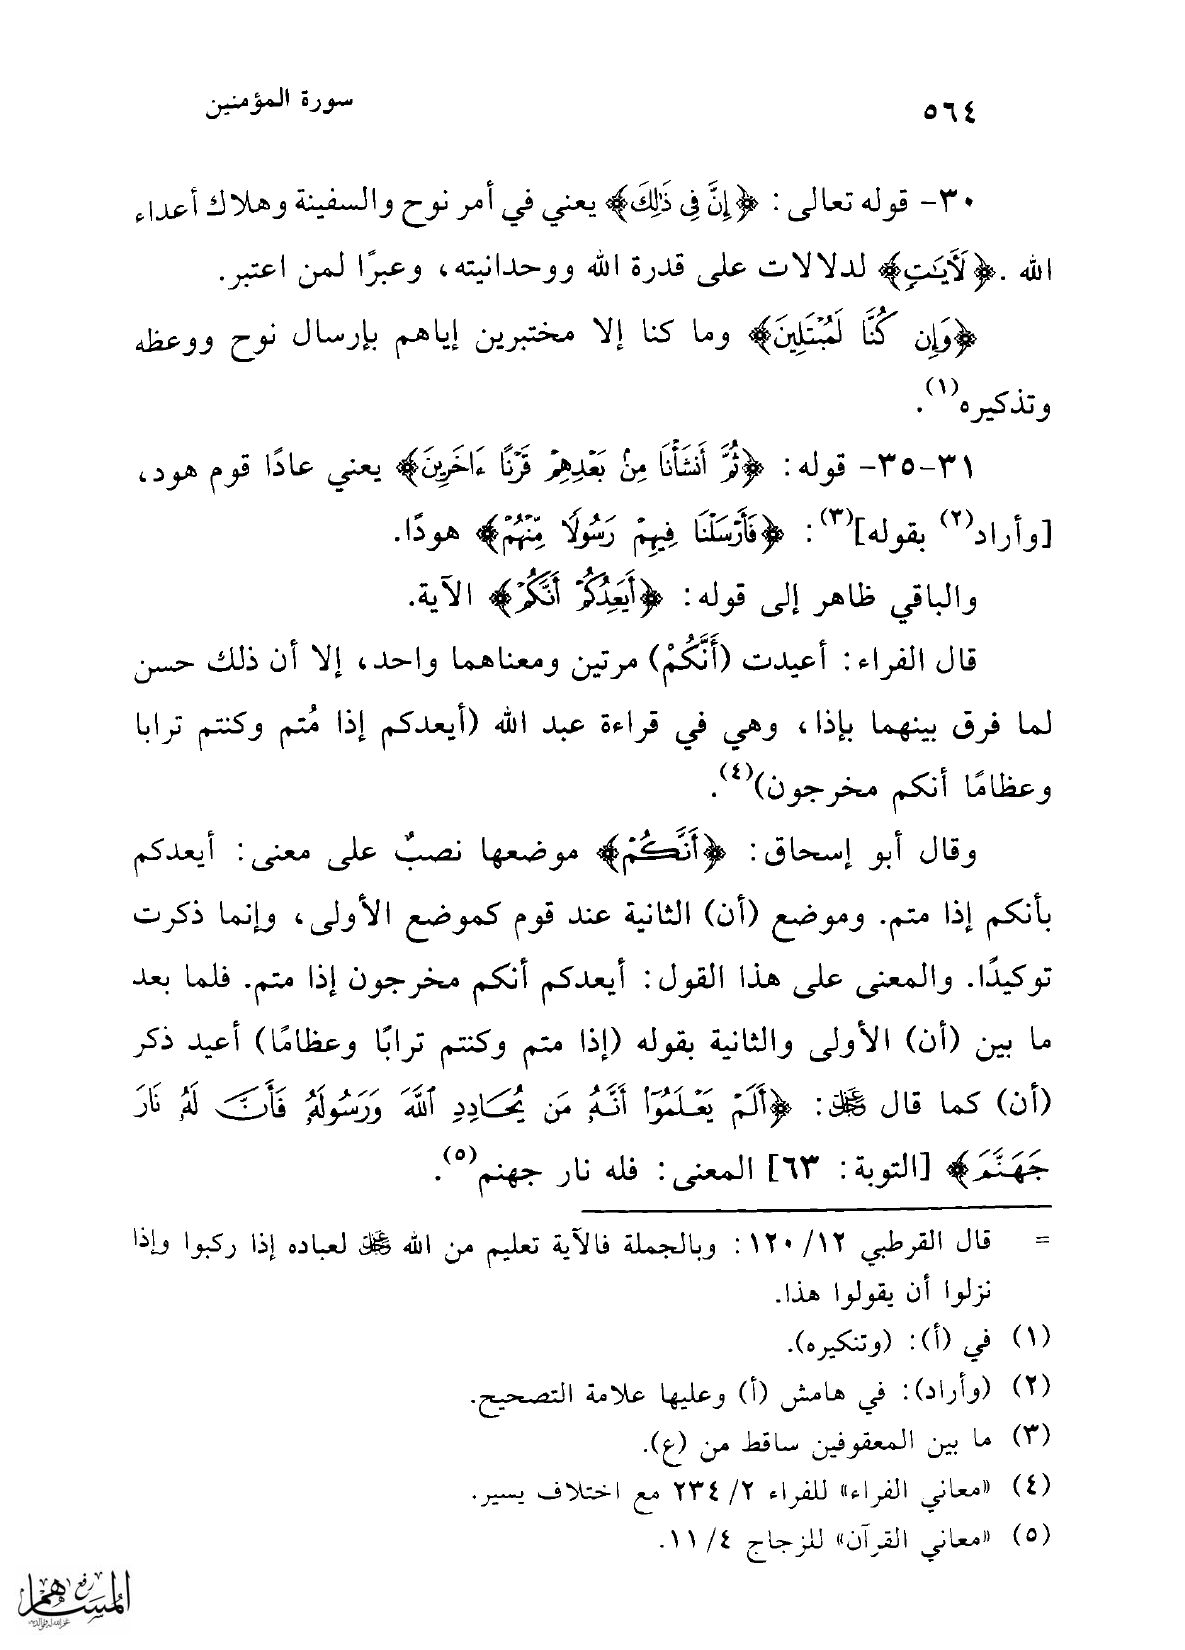 ٥٦٤
سورة المؤمنين
٣٠- قوله تعالى: ﴿إِنَّ فِي ذَٰلِكَ﴾ يعني في أمر نوح والسفينة وهلاك أعداء
الله. ﴿لَآيَٰتٍ﴾ لدلالات على قدرة الله ووحدانيته، وعبرًا لمن اعتبر.
﴿وَإِن كُنَّا لَمُبْتَلِينَ﴾ وما كنا إلا مختبرين إياهم بإرسال نوح ووعظه
وتذكيره(١).
٣١-٣٥- قوله: ﴿ثُمَّ أَنشَأْنَا مِنۢ بَعْدِهِمْ قَرْنًا ءَاخَرِينَ﴾ يعني عادًا قوم هود،
[وأراد(٢) بقوله](٣): ﴿فَأَرْسَلْنَا فِيهِمْ رَسُولًا مِّنْهُمْ﴾ هودًا.
والباقي ظاهر إلى قوله: ﴿أَيَعِدُكُمْ أَنَّكُمْ﴾ الآية.
قال الفراء: أعيدت (أَنَّكُمْ) مرتين ومعناهما واحد، إلا أن ذلك حسن
لما فرق بينهما بإذا، وهي في قراءة عبد الله (أيعدكم إذا مُتم وكنتم ترابا
وعظامًا أنكم مخرجون)(٤).
وقال أبو إسحاق: ﴿أَنَّكُمْ﴾ موضعها نصبٌ على معنى: أيعدكم
بأنكم إذا متم. وموضع (أن) الثانية عند قوم كموضع الأولى، وإنما ذكرت
توكيدًا. والمعنى على هذا القول: أيعدكم أنكم مخرجون إذا متم. فلما بعد
ما بين (أن) الأولى والثانية بقوله (إذا متم وكنتم ترابًا وعظامًا) أعيد ذكر
(أن) كما قال عز وجل: ﴿أَلَمْ يَعْلَمُوٓا۟ أَنَّهُۥ مَن يُحَادِدِ ٱللَّهَ وَرَسُولَهُۥ فَأَنَّ لَهُۥ نَارَ
جَهَنَّمَ﴾ [التوبة: ٦٣] المعنى: فله نار جهنم(٥).
= قال القرطبي ١٢/ ١٢٠: وبالجملة فالآية تعليم من الله عز وجل لعباده إذا ركبوا وإذا
نزلوا أن يقولوا هذا.
(١) في (أ): (وتنكيره).
(٢) (وأراد): في هامش (أ) وعليها علامة التصحيح.
(٣) ما بين المعقوفين ساقط من (ع).
(٤) «معاني الفراء» للفراء ٢/ ٢٣٤ مع اختلاف يسير.
(٥) «معاني القرآن» للزجاج ٤/ ١١.